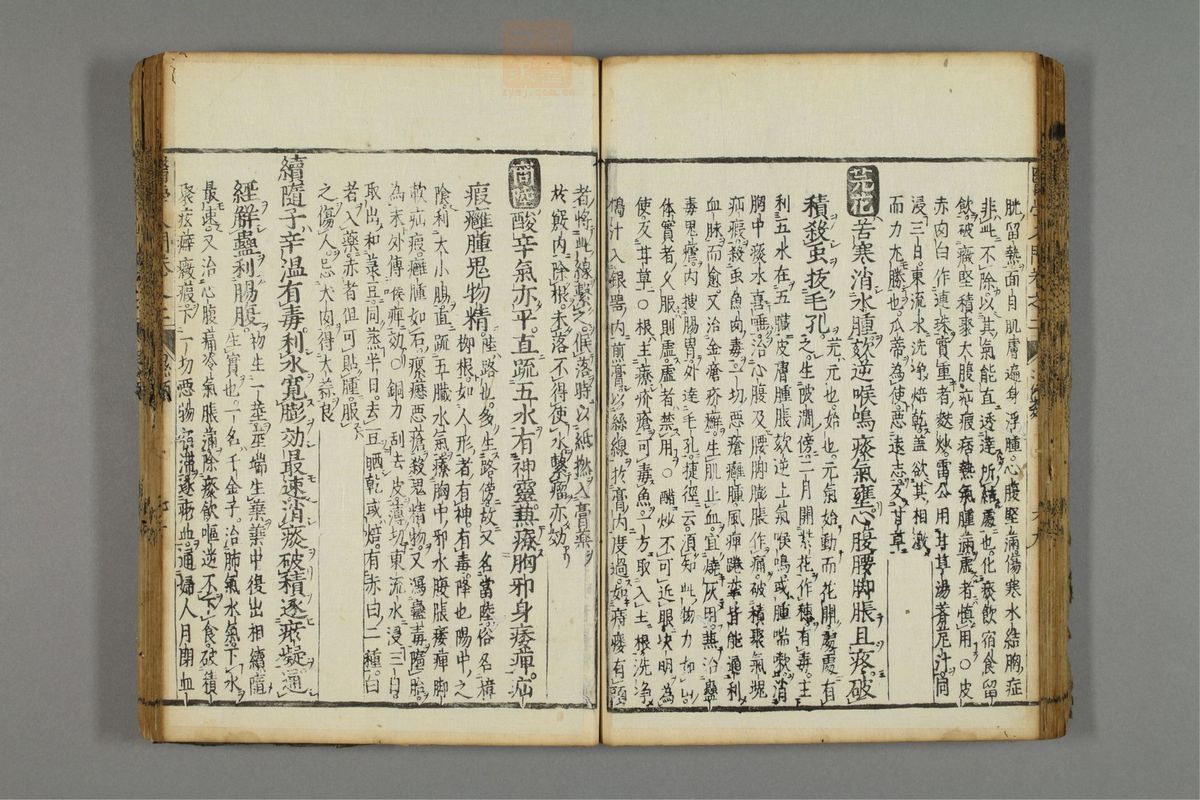 胱留熱面目肌膚遍身浮腫心腹堅滿傷寒水結胸症
非此不除以其氣能直透達所結處也化痰飲宿食留
飲破癥堅積聚大腹疝瘕痞熱氣腫滿虛者慎用○皮
赤肉白作連珠實重者麩炒雷公用甘草湯薺苨汁同
浸三日東流水洗淨焙乾蓋欲其相激
而力尤勝也瓜蒂為使惡遠志反甘草
芫花苦寒消水腫欬逆喉鳴痰氣壅心腹腰脚脹且疼破
積殺虫拔毛孔芫元也始也元氣始動而花開處處有
之生陂澗傍二月開紫花作穗有毒主
利五水在五臟皮膚腫脹欬逆上氣喉鳴或腫喘欬消
胸中痰水喜唾治心腹及腰脚膨脹作痛破積聚氣塊
疝瘕殺虫魚肉毒一切惡瘡癰腫風痺蹼攣甘能通利
血脉而愈又治金瘡疥癬生肌止血宜燒灰用兼治蠱
毒鬼瘧內搜腸胃外達毛孔捷徑云須知此物力如山
体實者久服則虛虛者禁用○醋炒不可近眼決明為
使反甘草○根主療疥瘡可毒魚一方取入土根洗淨
搗汁入銀器內煎膏以絲線於膏內度過如痔瘻有頭
者將此線繫之俱落時以紙撚入膏藥
於竅內除根未落不得使水繫瘤亦效
商陸酸辛氣亦平直疏五水有神靈熱療胸邪身痿痺疝
瘕癰腫鬼物精陸路也多生路傍故又名當陸俗名樟
柳根如人形者有神有毒降也陽中之
陰利大小腸直疏五臟水氣療胸中邪水腹脹痿痺脚
軟疝瘕癰腫如石瘰癧惡瘡殺鬼精物又瀉蠱毒墮胎
為末外傅喉痺効○銅刀刮去皮薄切東流水浸三日
取出和菉豆同蒸半日去豆晒乾或焙有赤白二種白
者入藥赤者但可貼腫服
之傷人忌犬肉得大蒜良
續隨子辛溫有毒利水寬膨効最速消痰破積逐瘀凝通
經解蠱利腸腹初生一莖莖端生葉葉中復出相續隨
生實也一名千金子治肺氣水氣下水
最速又治心腹痛冷氣脹滿除痰飲嘔逆不下食破積
聚痃癖癥瘕下一切惡物宿滯逐瘀血通婦人月閉血